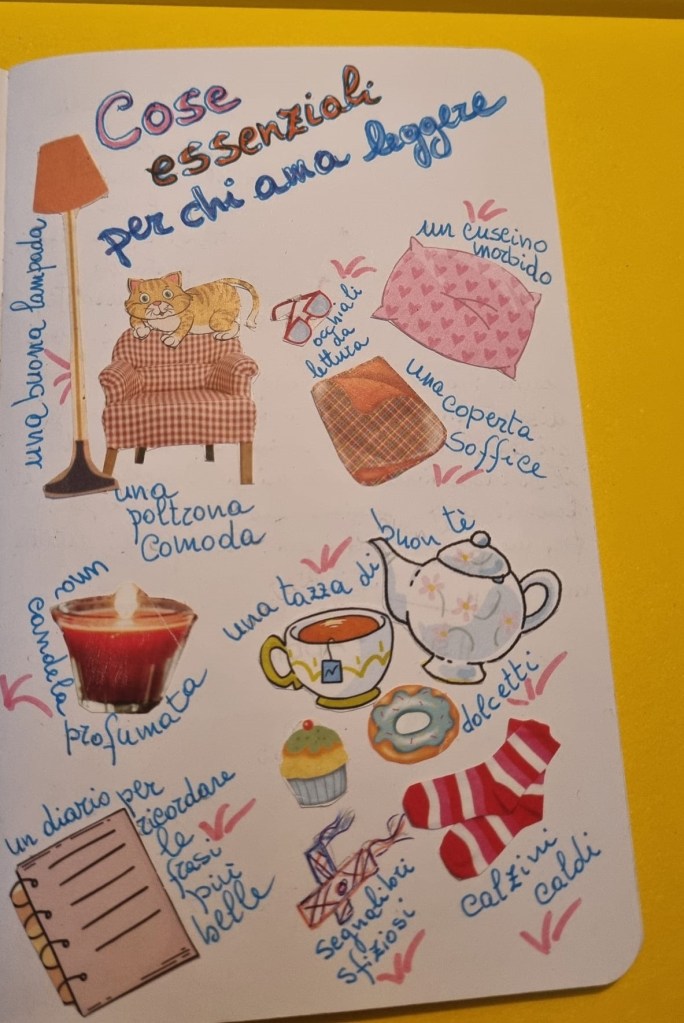 Cose
essenziali
per chi ama leggere
una buona lampada
un cuscino
morbido
occhiali
da
lettura
una
coperta
soffice
una
poltrona
comoda
una
candela
profumata
una tazza di
buon tè
dolcetti
un diario per
ricordare
le
frasi
più
belle
segnalibri
sfiziosi
calzini
caldi